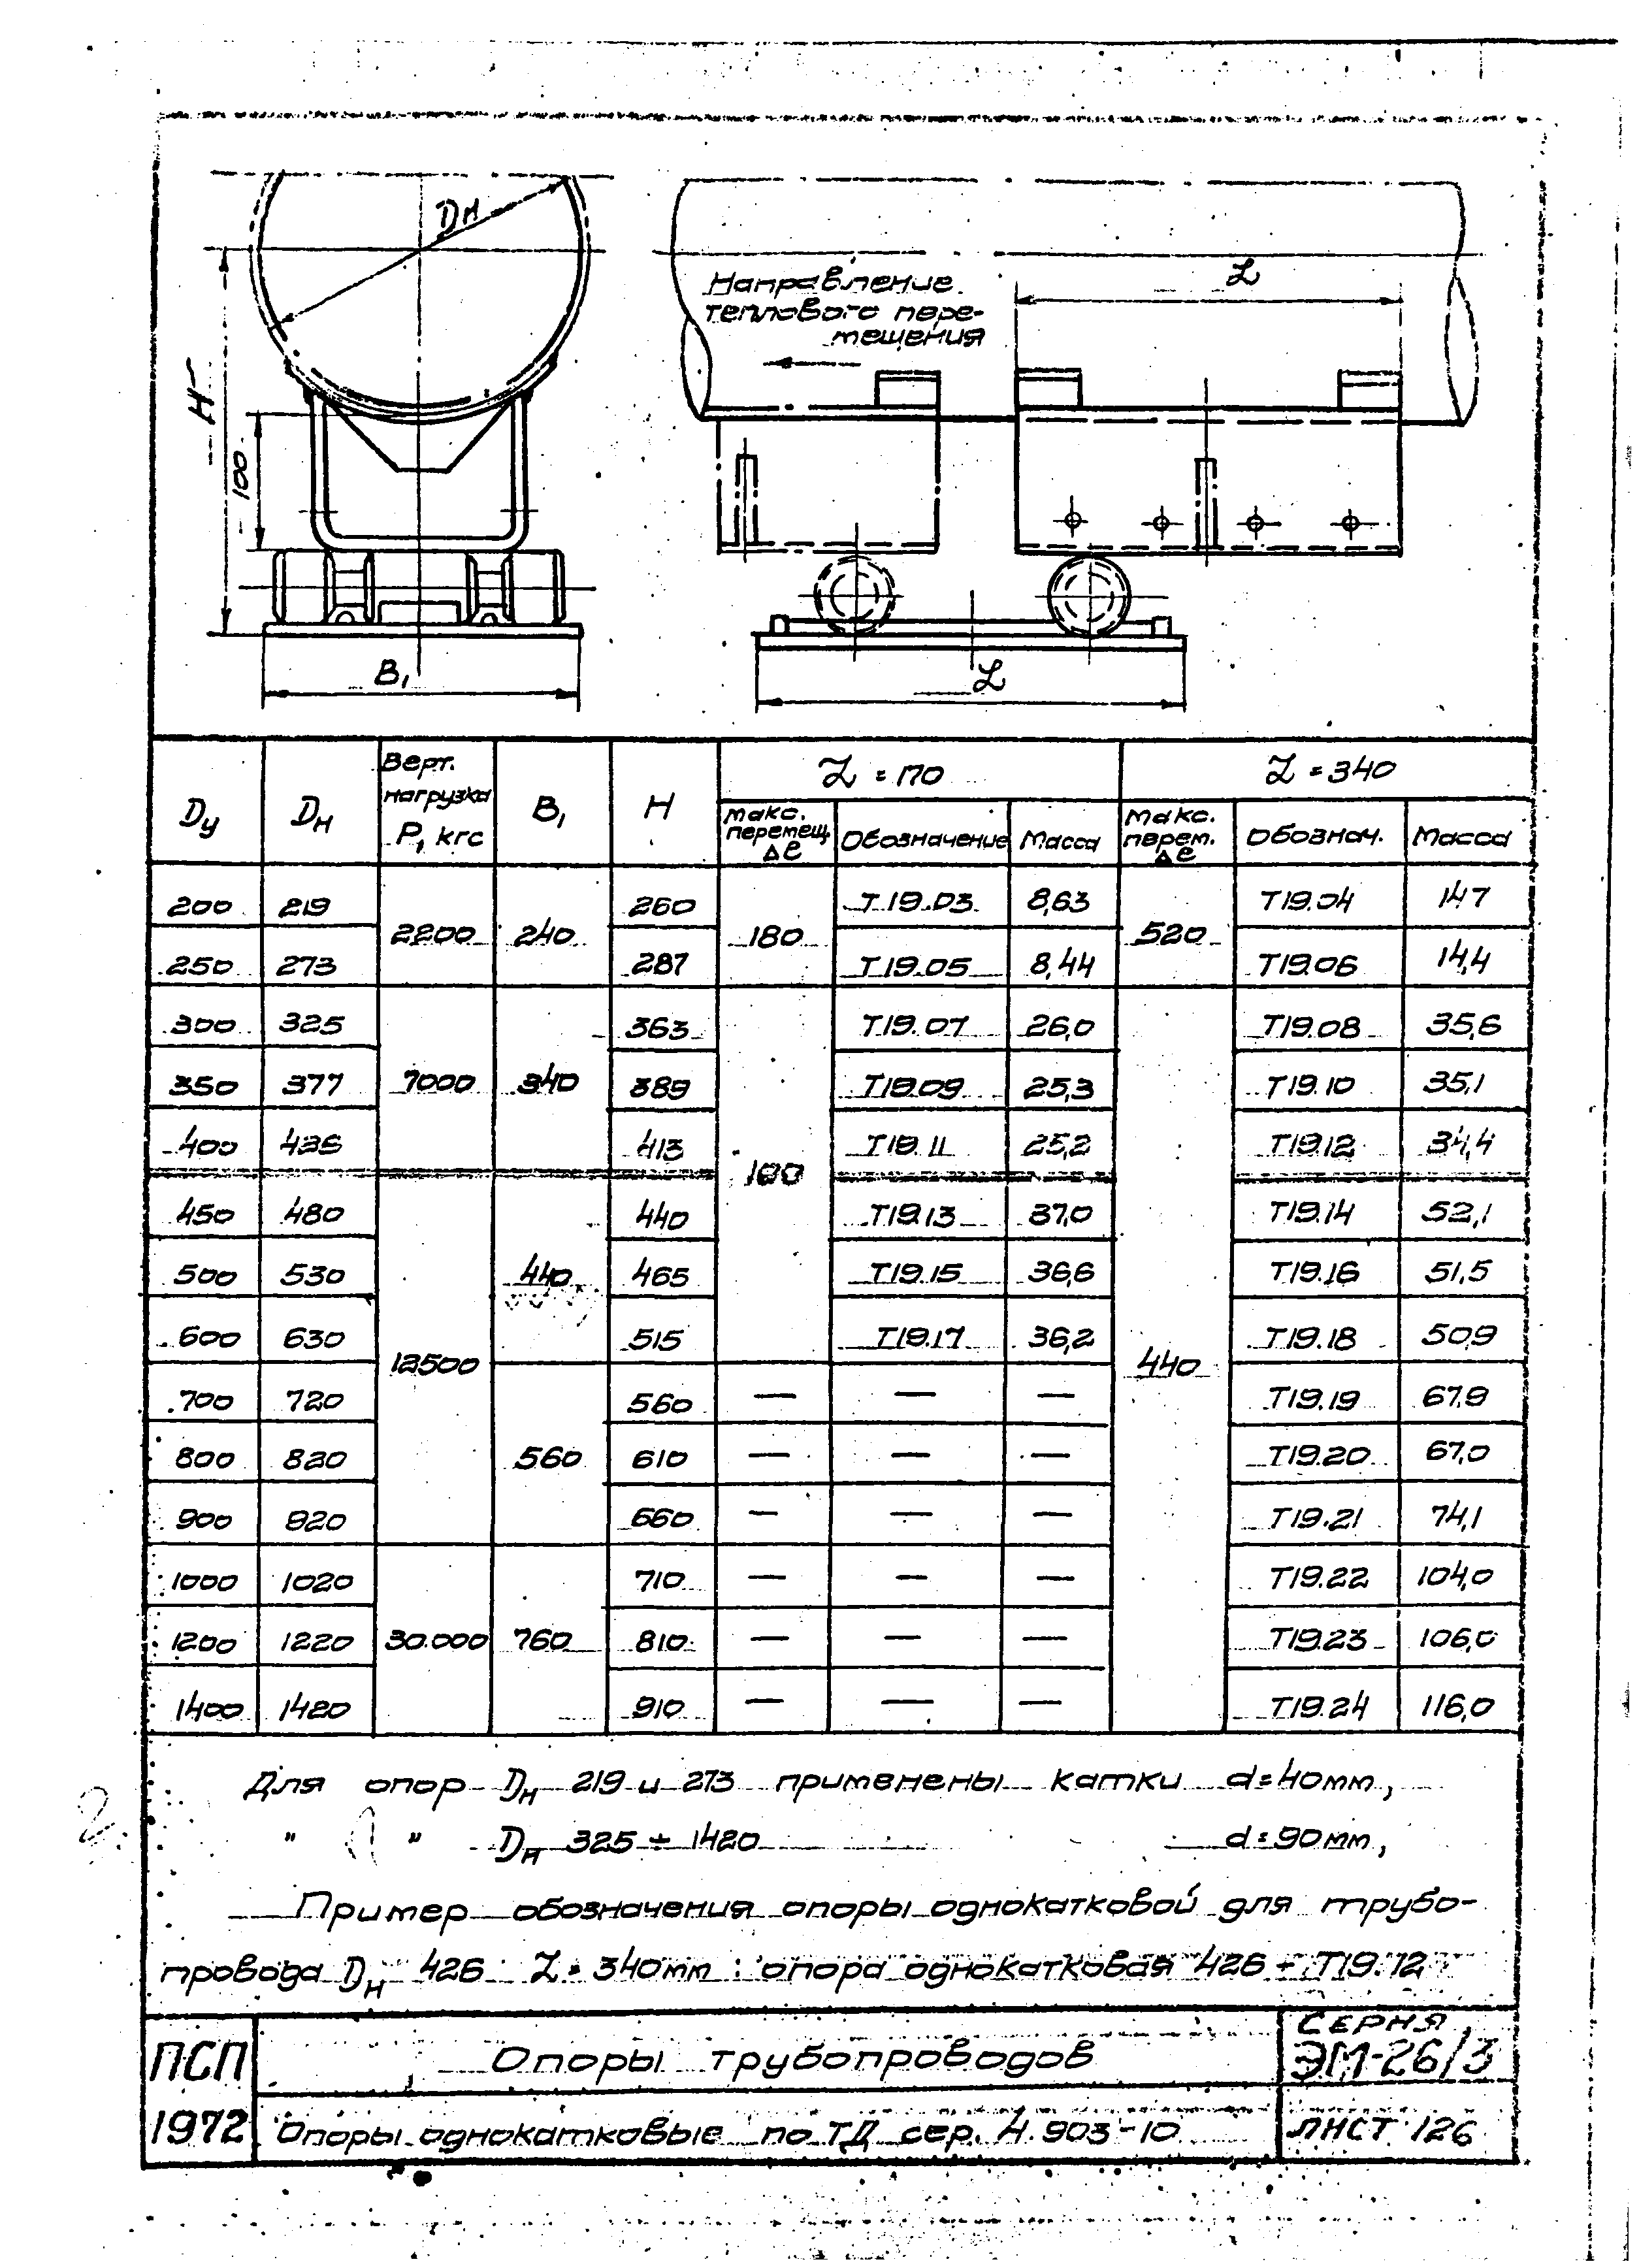 Dн
Направление
теплового пере-
мещения
L
H
100
B₁
L
Dу Dн Верт. нагрузка P, кгс B₁ H L = 170 L = 340
макс. перемещ. Δℓ Обозначение Масса макс. перем. Δℓ Обознач. Масса
200 219 2200 240 260 180 Т19.03 8,63 520 Т19.04 14,7
250 273 287 Т19.05 8,44 Т19.06 14,4
300 325 7000 340 363 100 Т19.07 26,0 440 Т19.08 35,6
350 377 389 Т19.09 25,3 Т19.10 35,1
400 426 413 Т19.11 25,2 Т19.12 34,4
450 480 12500 440 440 Т19.13 37,0 Т19.14 52,1
500 530 465 Т19.15 36,6 Т19.16 51,5
600 630 515 Т19.17 36,2 Т19.18 50,9
700 720 560 560 — — — Т19.19 67,9
800 820 610 — — — Т19.20 67,0
900 920 660 — — — Т19.21 74,1
1000 1020 30.000 760 710 — — — Т19.22 104,0
1200 1220 810 — — — Т19.23 106,0
1400 1420 910 — — — Т19.24 116,0
Для опор Dн 219 и 273 применены катки d=40мм,
" " Dн 325 ÷ 1420 d=90мм,
Пример обозначения опоры однокатковой для трубо-
провода Dн 426 L = 340мм : опора однокатковая 426 - Т19.12
ПСП Опоры трубопроводов СЕРИЯ ЭМ-26/3
1972 Опоры однокатковые по ТД сер. 4.903-10 ЛИСТ 126